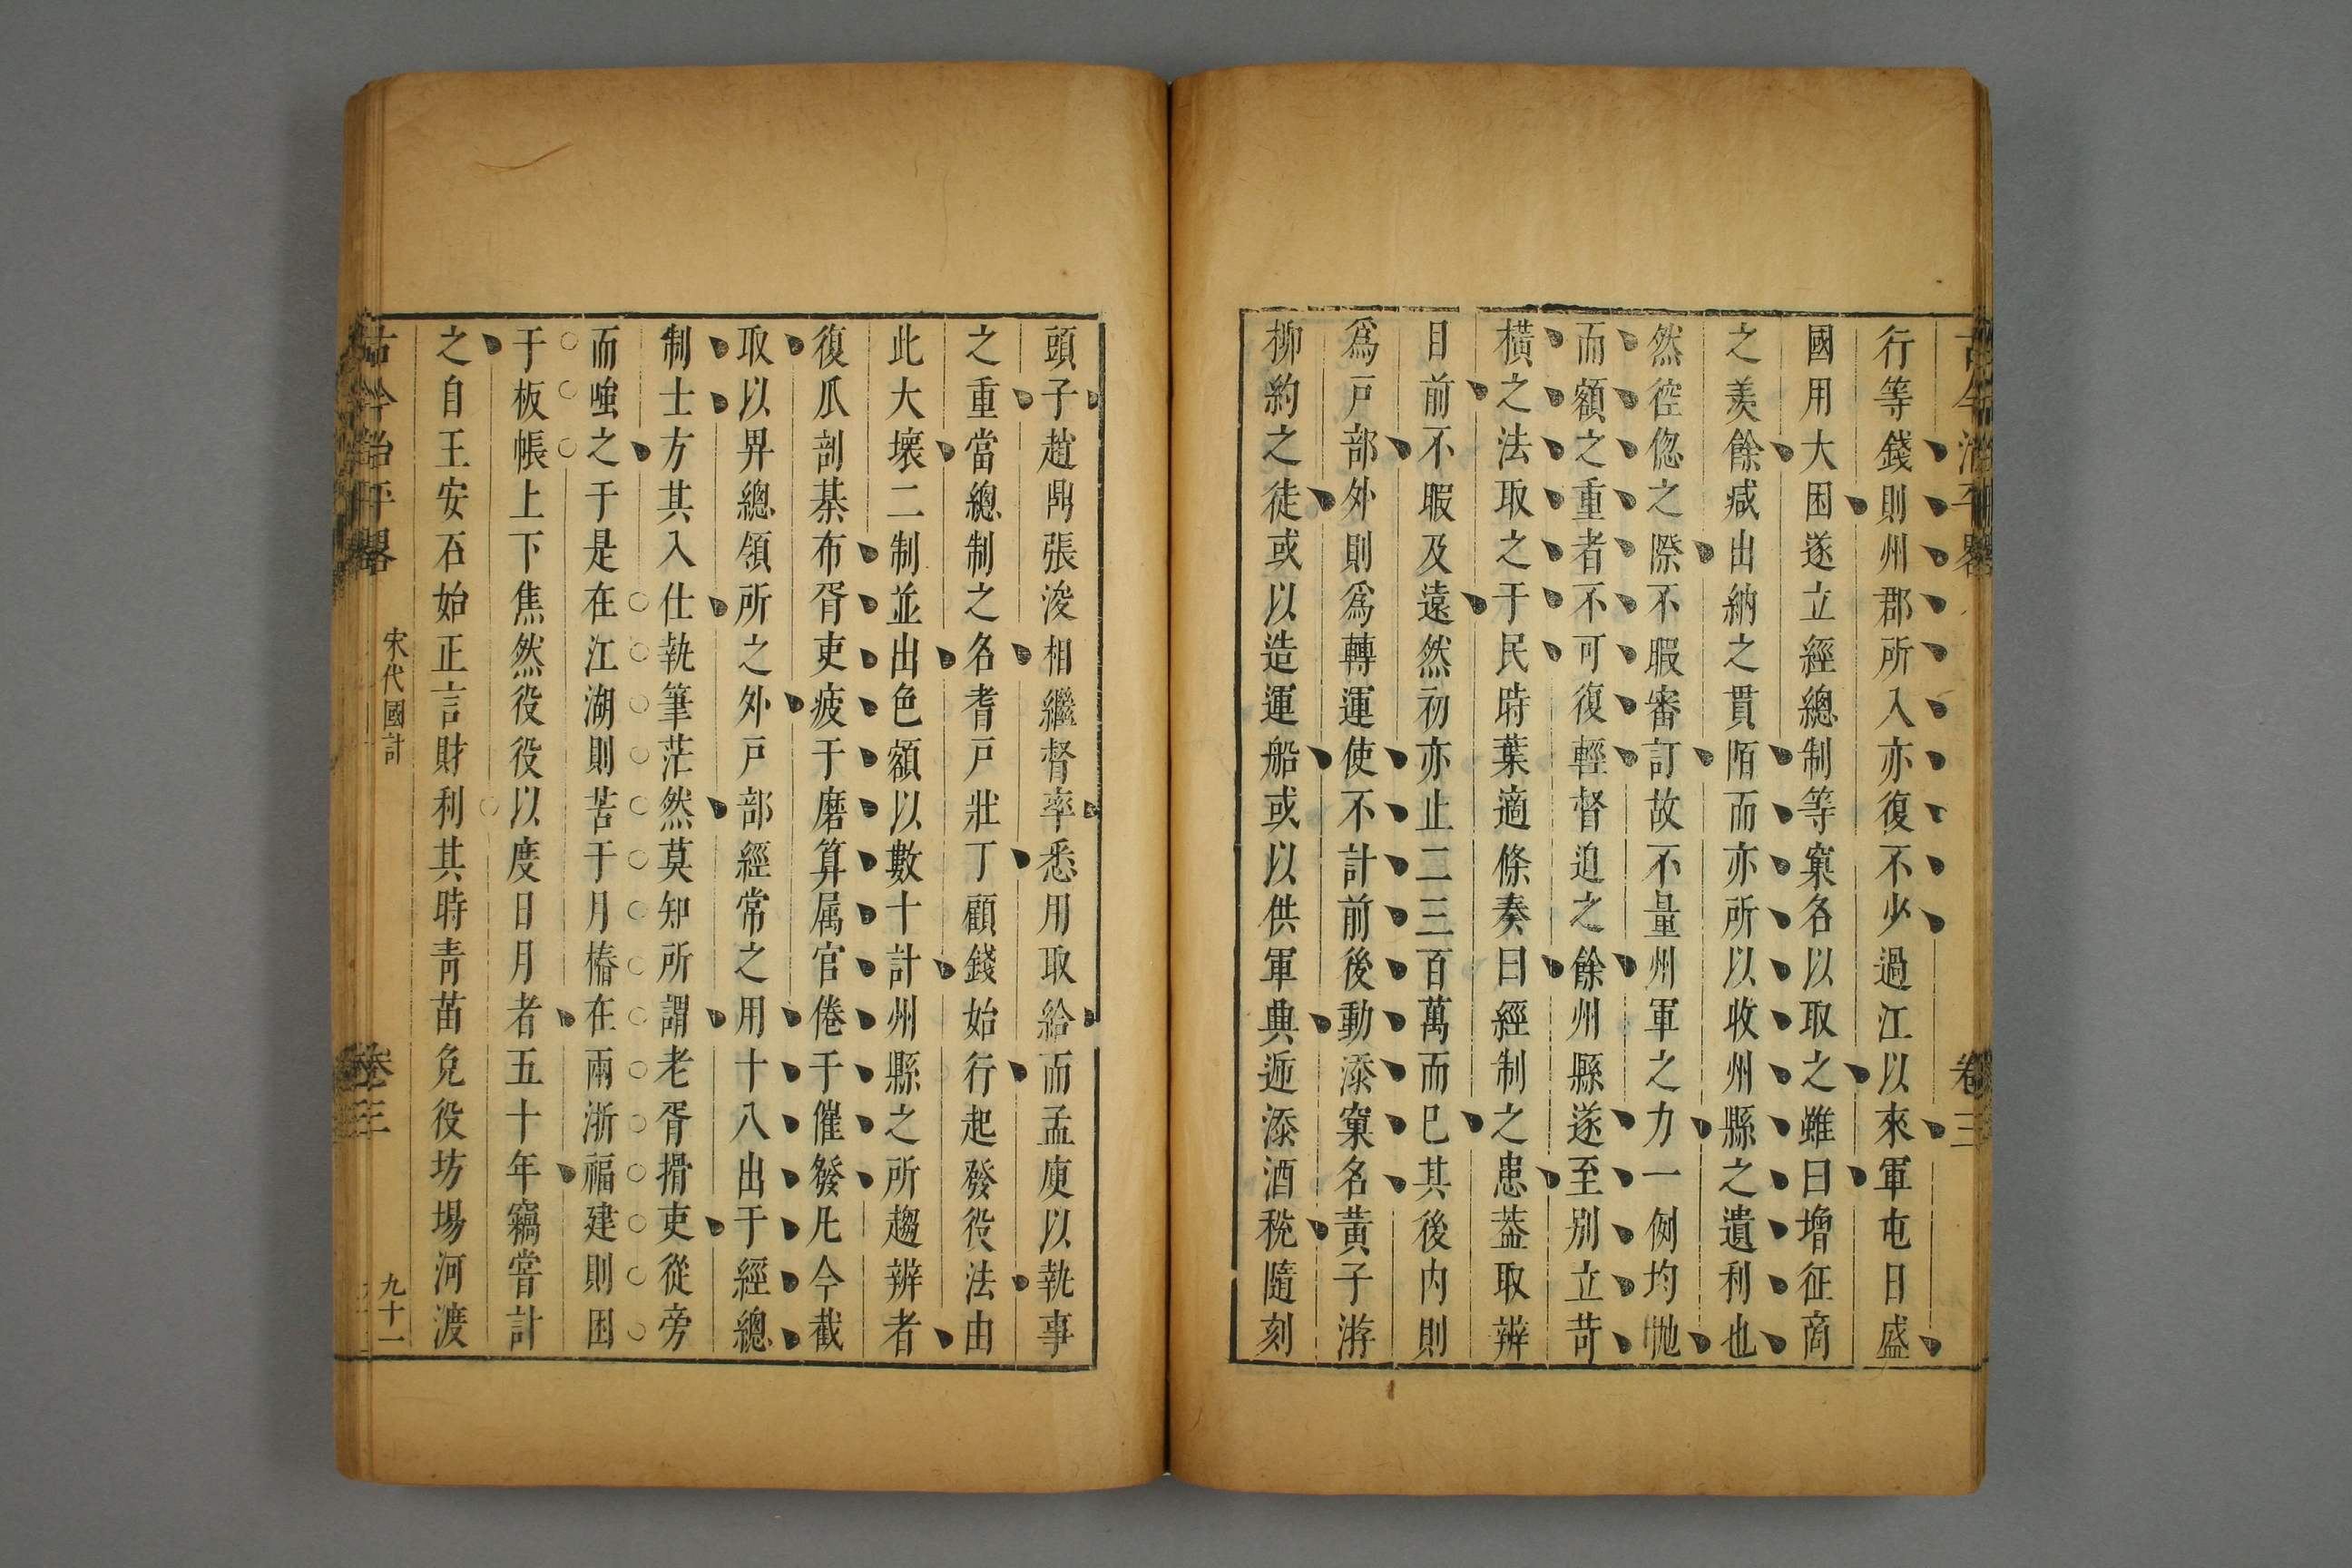 古今治平畧 卷三
行等錢則州郡所入亦復不少過江以來軍屯日盛
國用大困遂立經總制等窠名以取之雖曰增征商
之羨餘减出納之貫陌而亦所以收州縣之遺利也
然倥偬之際不暇審訂故不量州軍之力一例均抛
而額之重者不可復輕督迫之餘州縣遂至别立苛
橫之法取之于民時葉適條奏曰經制之患葢取辨
目前不暇及遠然初亦止二三百萬而巳其後内則
爲戸部外則爲轉運使不計前後動添窠名黃子游
柳約之徒或以造運船或以供軍典逓添酒稅隨刻
頭子趙鼎張浚相繼督率悉用取給而孟庾以執事
之重當總制之名耆戸壯丁顧錢始行起發役法由
此大壞二制並出色額以數十計州縣之所趨辨者
復瓜剖棊布胥吏疲于磨算属官倦于催發凡今截
取以畀總領所之外戸部經常之用十八出于經總
制士方其入仕執筆茫然莫知所謂老胥猾吏從旁
而嗤之于是在江湖則苦于月樁在兩浙福建則困
于板帳上下焦然役役以度日月者五十年竊嘗計
之自王安石始正言財利其時青苗免役坊場河渡
古今治平畧 宋代國計 卷三 九十一